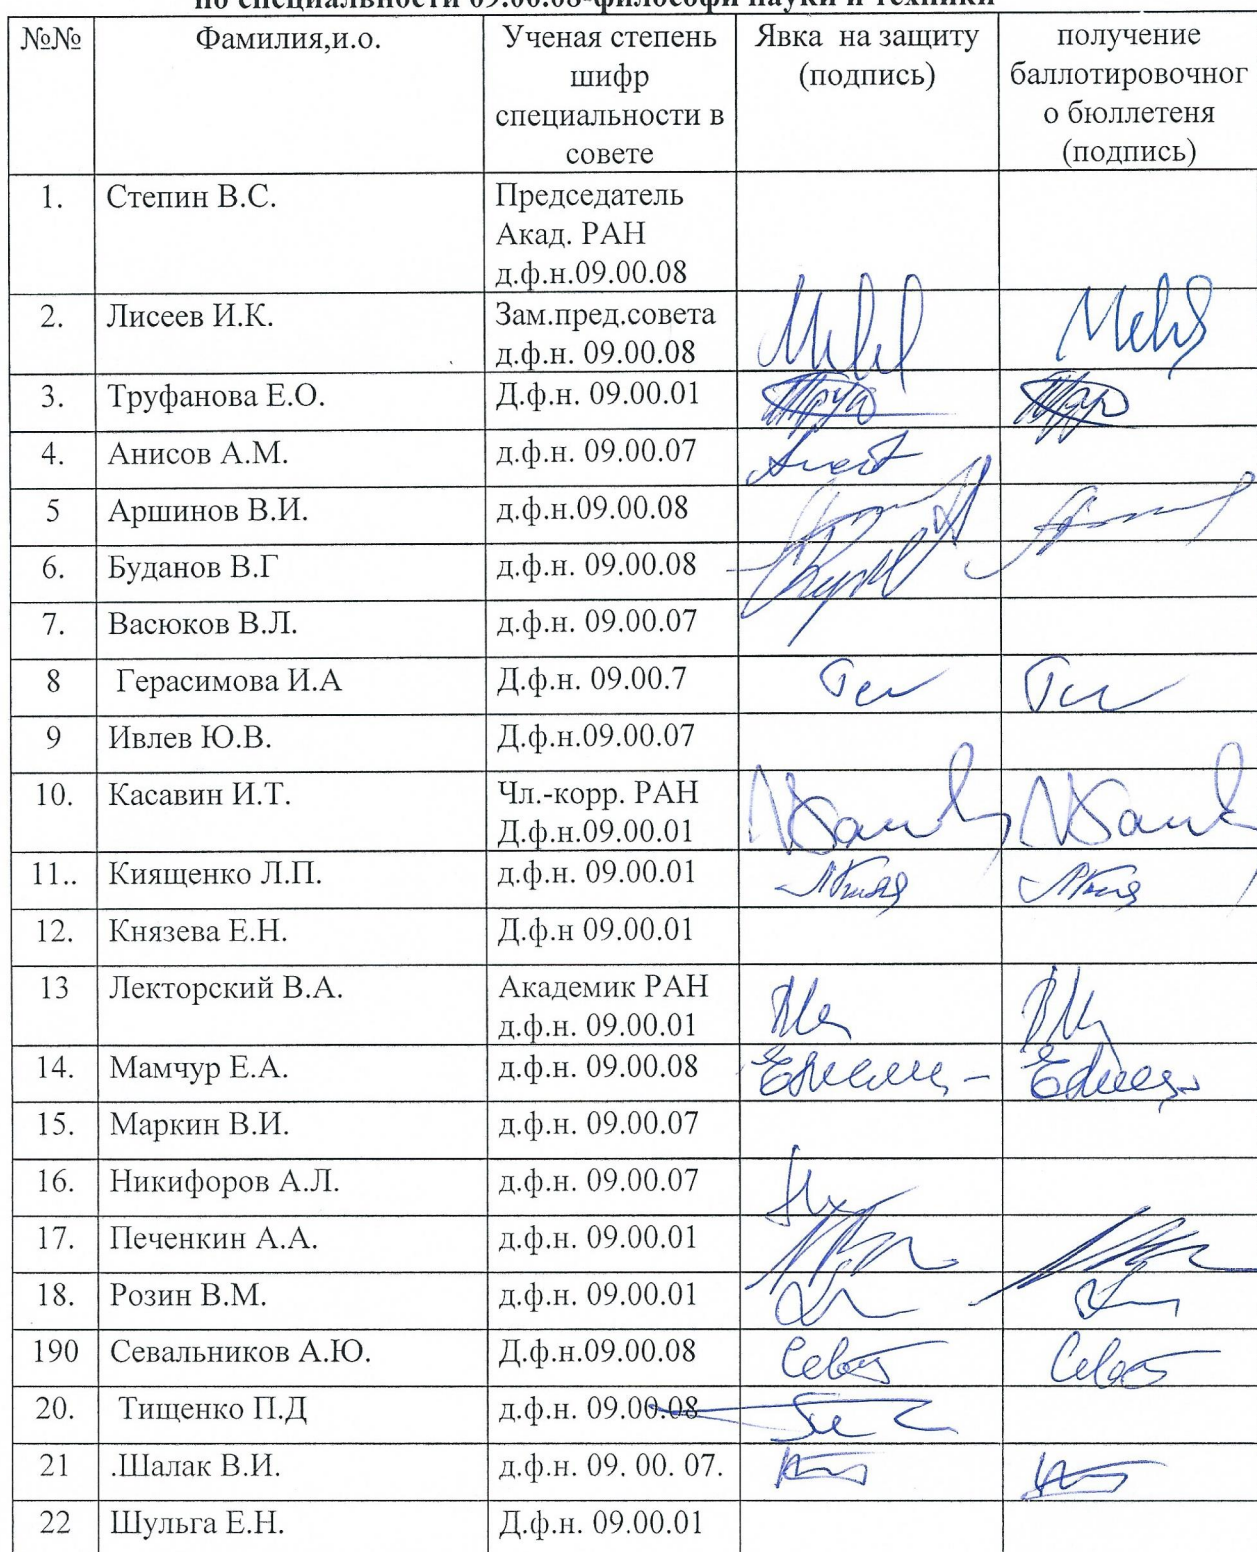 по специальности 09.00.08-философи науки и техники
№№ Фамилия,и.о. Ученая степень шифр специальности в совете Явка на защиту (подпись) получение баллотировочног о бюллетеня (подпись)
1. Степин В.С. Председатель
Акад. РАН
д.ф.н.09.00.08
2. Лисеев И.К. Зам.пред.совета
д.ф.н. 09.00.08
3. Труфанова Е.О. Д.ф.н. 09.00.01
4. Анисов А.М. д.ф.н. 09.00.07
5 Аршинов В.И. д.ф.н.09.00.08
6. Буданов В.Г д.ф.н. 09.00.08
7. Васюков В.Л. д.ф.н. 09.00.07
8 Герасимова И.А Д.ф.н. 09.00.7
9 Ивлев Ю.В. Д.ф.н.09.00.07
10. Касавин И.Т. Чл.-корр. РАН
Д.ф.н.09.00.01
11.. Киященко Л.П. д.ф.н. 09.00.01
12. Князева Е.Н. Д.ф.н 09.00.01
13 Лекторский В.А. Академик РАН
д.ф.н. 09.00.01
14. Мамчур Е.А. д.ф.н. 09.00.08
15. Маркин В.И. д.ф.н. 09.00.07
16. Никифоров А.Л. д.ф.н. 09.00.07
17. Печенкин А.А. д.ф.н. 09.00.01
18. Розин В.М. д.ф.н. 09.00.01
190 Севальников А.Ю. Д.ф.н.09.00.08
20. Тищенко П.Д д.ф.н. 09.00.08
21 .Шалак В.И. д.ф.н. 09. 00. 07.
22 Шульга Е.Н. Д.ф.н. 09.00.01